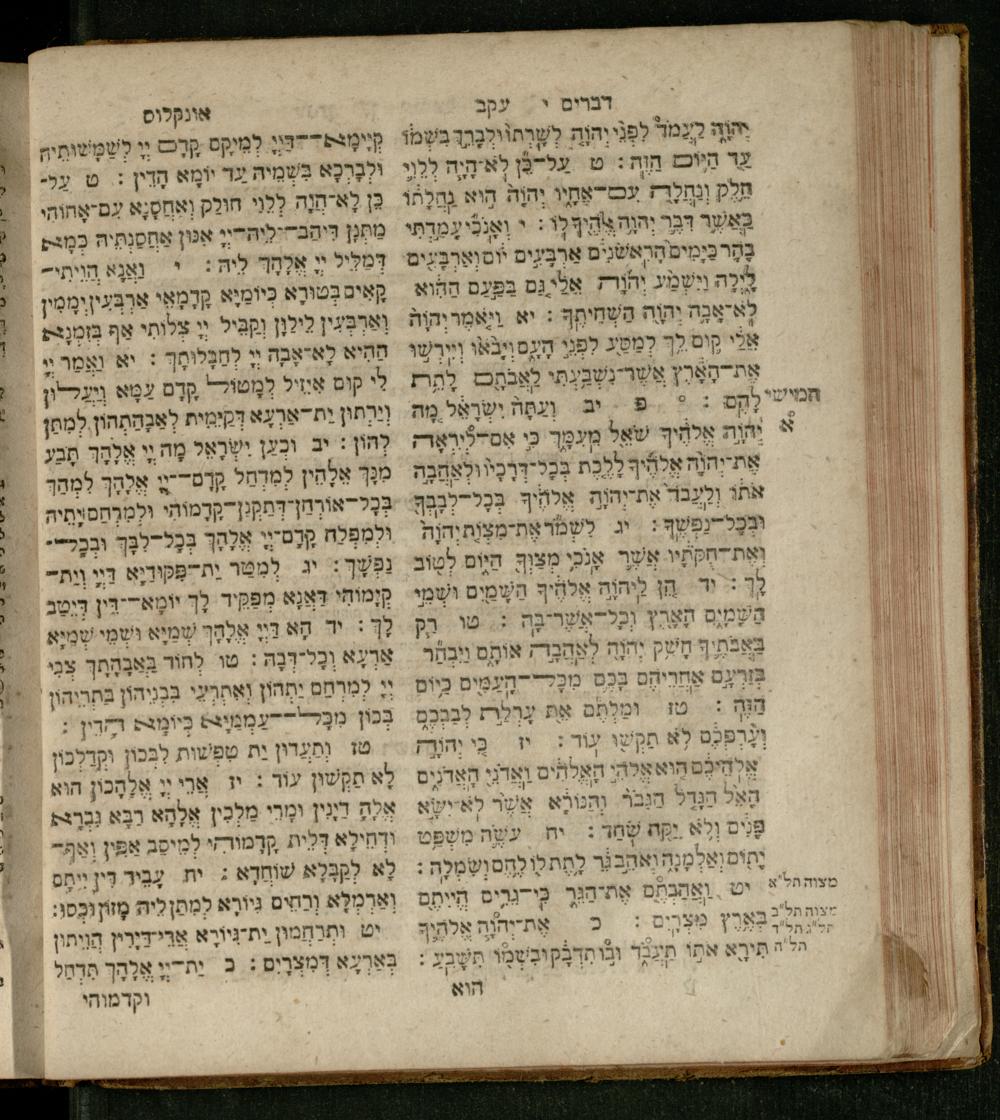 דברים י עקב
יְהֹוָה לַעֲמֹד לִפְנֵי יְהֹוָה לְשָׁרְתוֹ וּלְבָרֵךְ בִּשְׁמוֹ
עַד הַיּוֹם הַזֶּה : ט עַל־כֵּן לֹא־הָיָה לְלֵוִי
חֵלֶק וְנַחֲלָה עִם־אֶחָיו יְהֹוָה הוּא נַחֲלָתוֹ
כַּאֲשֶׁר דִּבֶּר יְהֹוָה אֱלֹהֶיךָ לוֹ : י וְאָנֹכִי עָמַדְתִּי
בָהָר כַּיָּמִים הָרִאשֹׁנִים אַרְבָּעִים יוֹם וְאַרְבָּעִים
לָיְלָה וַיִּשְׁמַע יְהֹוָה אֵלַי גַּם בַּפַּעַם הַהִוא
לֹא־אָבָה יְהֹוָה הַשְׁחִיתֶךָ : יא וַיֹּאמֶר יְהֹוָה
אֵלַי קוּם לֵךְ לְמַסַּע לִפְנֵי הָעָם וְיָבֹאוּ וְיִירְשׁוּ
אֶת־הָאָרֶץ אֲשֶׁר־נִשְׁבַּעְתִּי לַאֲבֹתָם לָתֵת
לָהֶם : ° פ יב וְעַתָּה יִשְׂרָאֵל מָה
חמישי
יְהֹוָה אֱלֹהֶיךָ שֹׁאֵל מֵעִמָּךְ כִּי אִם־לְיִרְאָה
אֶת־יְהֹוָה אֱלֹהֶיךָ לָלֶכֶת בְּכָל־דְּרָכָיו וּלְאַהֲבָה
אֹתוֹ וְלַעֲבֹד אֶת־יְהֹוָה אֱלֹהֶיךָ בְּכָל־לְבָבְךָ
וּבְכָל־נַפְשֶׁךָ : יג לִשְׁמֹר אֶת־מִצְוֹת יְהֹוָה
וְאֶת־חֻקֹּתָיו אֲשֶׁר אָנֹכִי מְצַוְּךָ הַיּוֹם לְטוֹב
לָךְ : יד הֵן לַיהֹוָה אֱלֹהֶיךָ הַשָּׁמַיִם וּשְׁמֵי
הַשָּׁמָיִם הָאָרֶץ וְכָל־אֲשֶׁר־בָּהּ : טו רַק
בַּאֲבֹתֶיךָ חָשַׁק יְהֹוָה לְאַהֲבָה אוֹתָם וַיִּבְחַר
בְּזַרְעָם אַחֲרֵיהֶם בָּכֶם מִכָּל־הָעַמִּים כַּיּוֹם
הַזֶּה : טז וּמַלְתֶּם אֵת עָרְלַת לְבַבְכֶם
וְעָרְפְּכֶם לֹא תַקְשׁוּ עוֹד : יז כִּי יְהֹוָה
אֱלֹהֵיכֶם הוּא אֱלֹהֵי הָאֱלֹהִים וַאֲדֹנֵי הָאֲדֹנִים
הָאֵל הַגָּדֹל הַגִּבֹּר וְהַנּוֹרָא אֲשֶׁר לֹא־יִשָּׂא
פָנִים וְלֹא יִקַּח שֹׁחַד : יח עֹשֶׂה מִשְׁפַּט
יָתוֹם וְאַלְמָנָה וְאֹהֵב גֵּר לָתֶת לוֹ לֶחֶם וְשִׂמְלָה :
יט וַאֲהַבְתֶּם אֶת־הַגֵּר כִּי־גֵרִים הֱיִיתֶם
מצוה תל"א
בְּאֶרֶץ מִצְרָיִם : כ אֶת־יְהֹוָה אֱלֹהֶיךָ
מצוה תל"ב
תל"ג תל"ד
תִּירָא אֹתוֹ תַעֲבֹד וּבוֹ תִדְבָּק וּבִשְׁמוֹ תִּשָּׁבֵעַ :
תל"ה
הוא
אונקלוס
קְיָימָא־דַּייָ לְמֵיקַם קֳדָם יְיָ לְשַׁמָּשׁוּתֵיהּ
וּלְבָרְכָא בִּשְׁמֵיהּ עַד יוֹמָא הָדֵין : ט עַל־
כֵּן לָא־הֲוָה לְלֵוִי חוּלַק וְאַחֲסָנָא עִם־אֲחוֹהִי
מַתְּנָן דִּיהַב־לֵיהּ־יְיָ אִנּוּן אַחֲסַנְתֵּיהּ כְּמָא
דְמַלֵּיל יְיָ אֱלָהָךְ לֵיהּ : י וַאֲנָא הֲוֵיתִי־
קָאִים בְּטוּרָא כְּיוֹמַיָּא קַדְמָאֵי אַרְבְּעִין יְמָמִין
וְאַרְבְּעִין לֵילָוָן וְקַבֵּיל יְיָ צְלוֹתִי אַף בְּזִמְנָא
הַהִיא לָא־אָבָה יְיָ לְחַבָּלוּתָךְ : יא וַאֲמַר יְיָ
לִי קוּם אִיזֵיל לְמָטוֹל קֳדָם עַמָּא וְיֵעֲלוּן
וְיַרְתוּן יַת־אַרְעָא דְּקַיֵּימִית לַאֲבָהַתְהוֹן לְמִתַּן
לְהוֹן : יב וּכְעַן יִשְׂרָאֵל מָה יְיָ אֱלָהָךְ תָּבַע
מִנָּךְ אֱלָהֵין לְמִדְחַל קֳדָם־יְיָ אֱלָהָךְ לִמְהַךְ
בְּכָל־אוֹרְחָן־דְּתַקְנָן־קֳדָמוֹהִי וּלְמִרְחַם יָתֵיהּ
וּלְמִפְלַח קֳדָם־יְיָ אֱלָהָךְ בְּכָל־לִבָּךְ וּבְכָל־
נַפְשָׁךְ : יג לְמִטַּר יַת־פִּקּוּדַיָּא דַּייָ וְיַת־
קְיָמוֹהִי דַּאֲנָא מְפַקֵּיד לָךְ יוֹמָא־דֵין דְּיֵיטַב
לָךְ : יד הָא דַּייָ אֱלָהָךְ שְׁמַיָּא וּשְׁמֵי שְׁמַיָּא
אַרְעָא וְכָל־דְּבָהּ : טו לְחוֹד בַּאֲבָהָתָךְ צְבִי
יְיָ לְמִרְחַם יַתְהוֹן וְאִתְרְעִי בִּבְנֵיהוֹן בַּתְרֵיהוֹן
בְּכוֹן מִכָּל־עַמְמַיָּא כְּיוֹמָא הָדֵין :
טז וְתַעְדוּן יַת טִפְשׁוּת לִבְּכוֹן וּקְדָלְכוֹן
לָא תַקְשׁוּן עוֹד : יז אֲרֵי יְיָ אֱלָהָכוֹן הוּא
אֱלָהּ דַּיָּנִין וּמָרֵי מַלְכִין אֱלָהָא רַבָּא גִּבָּרָא
וּדְחִילָא דְּלֵית קֳדָמוֹהִי לְמֵיסַב אַפִּין וְאַף־
לָא לְקַבָּלָא שׁוֹחֲדָא : יח עָבֵיד דִּין יִיתַם
וְאַרְמְלָא וְרָחִים גִּיּוֹרָא לְמִתַּן לֵיהּ מָזוֹן וּכְסוּ :
יט וְתִרְחֲמוּן יַת־גִּיּוֹרָא אֲרֵי־דַיָּרִין הֲוֵיתוֹן
בְּאַרְעָא דְּמִצְרָיִם : כ יַת־יְיָ אֱלָהָךְ תִּדְחַל
וקדמוהי